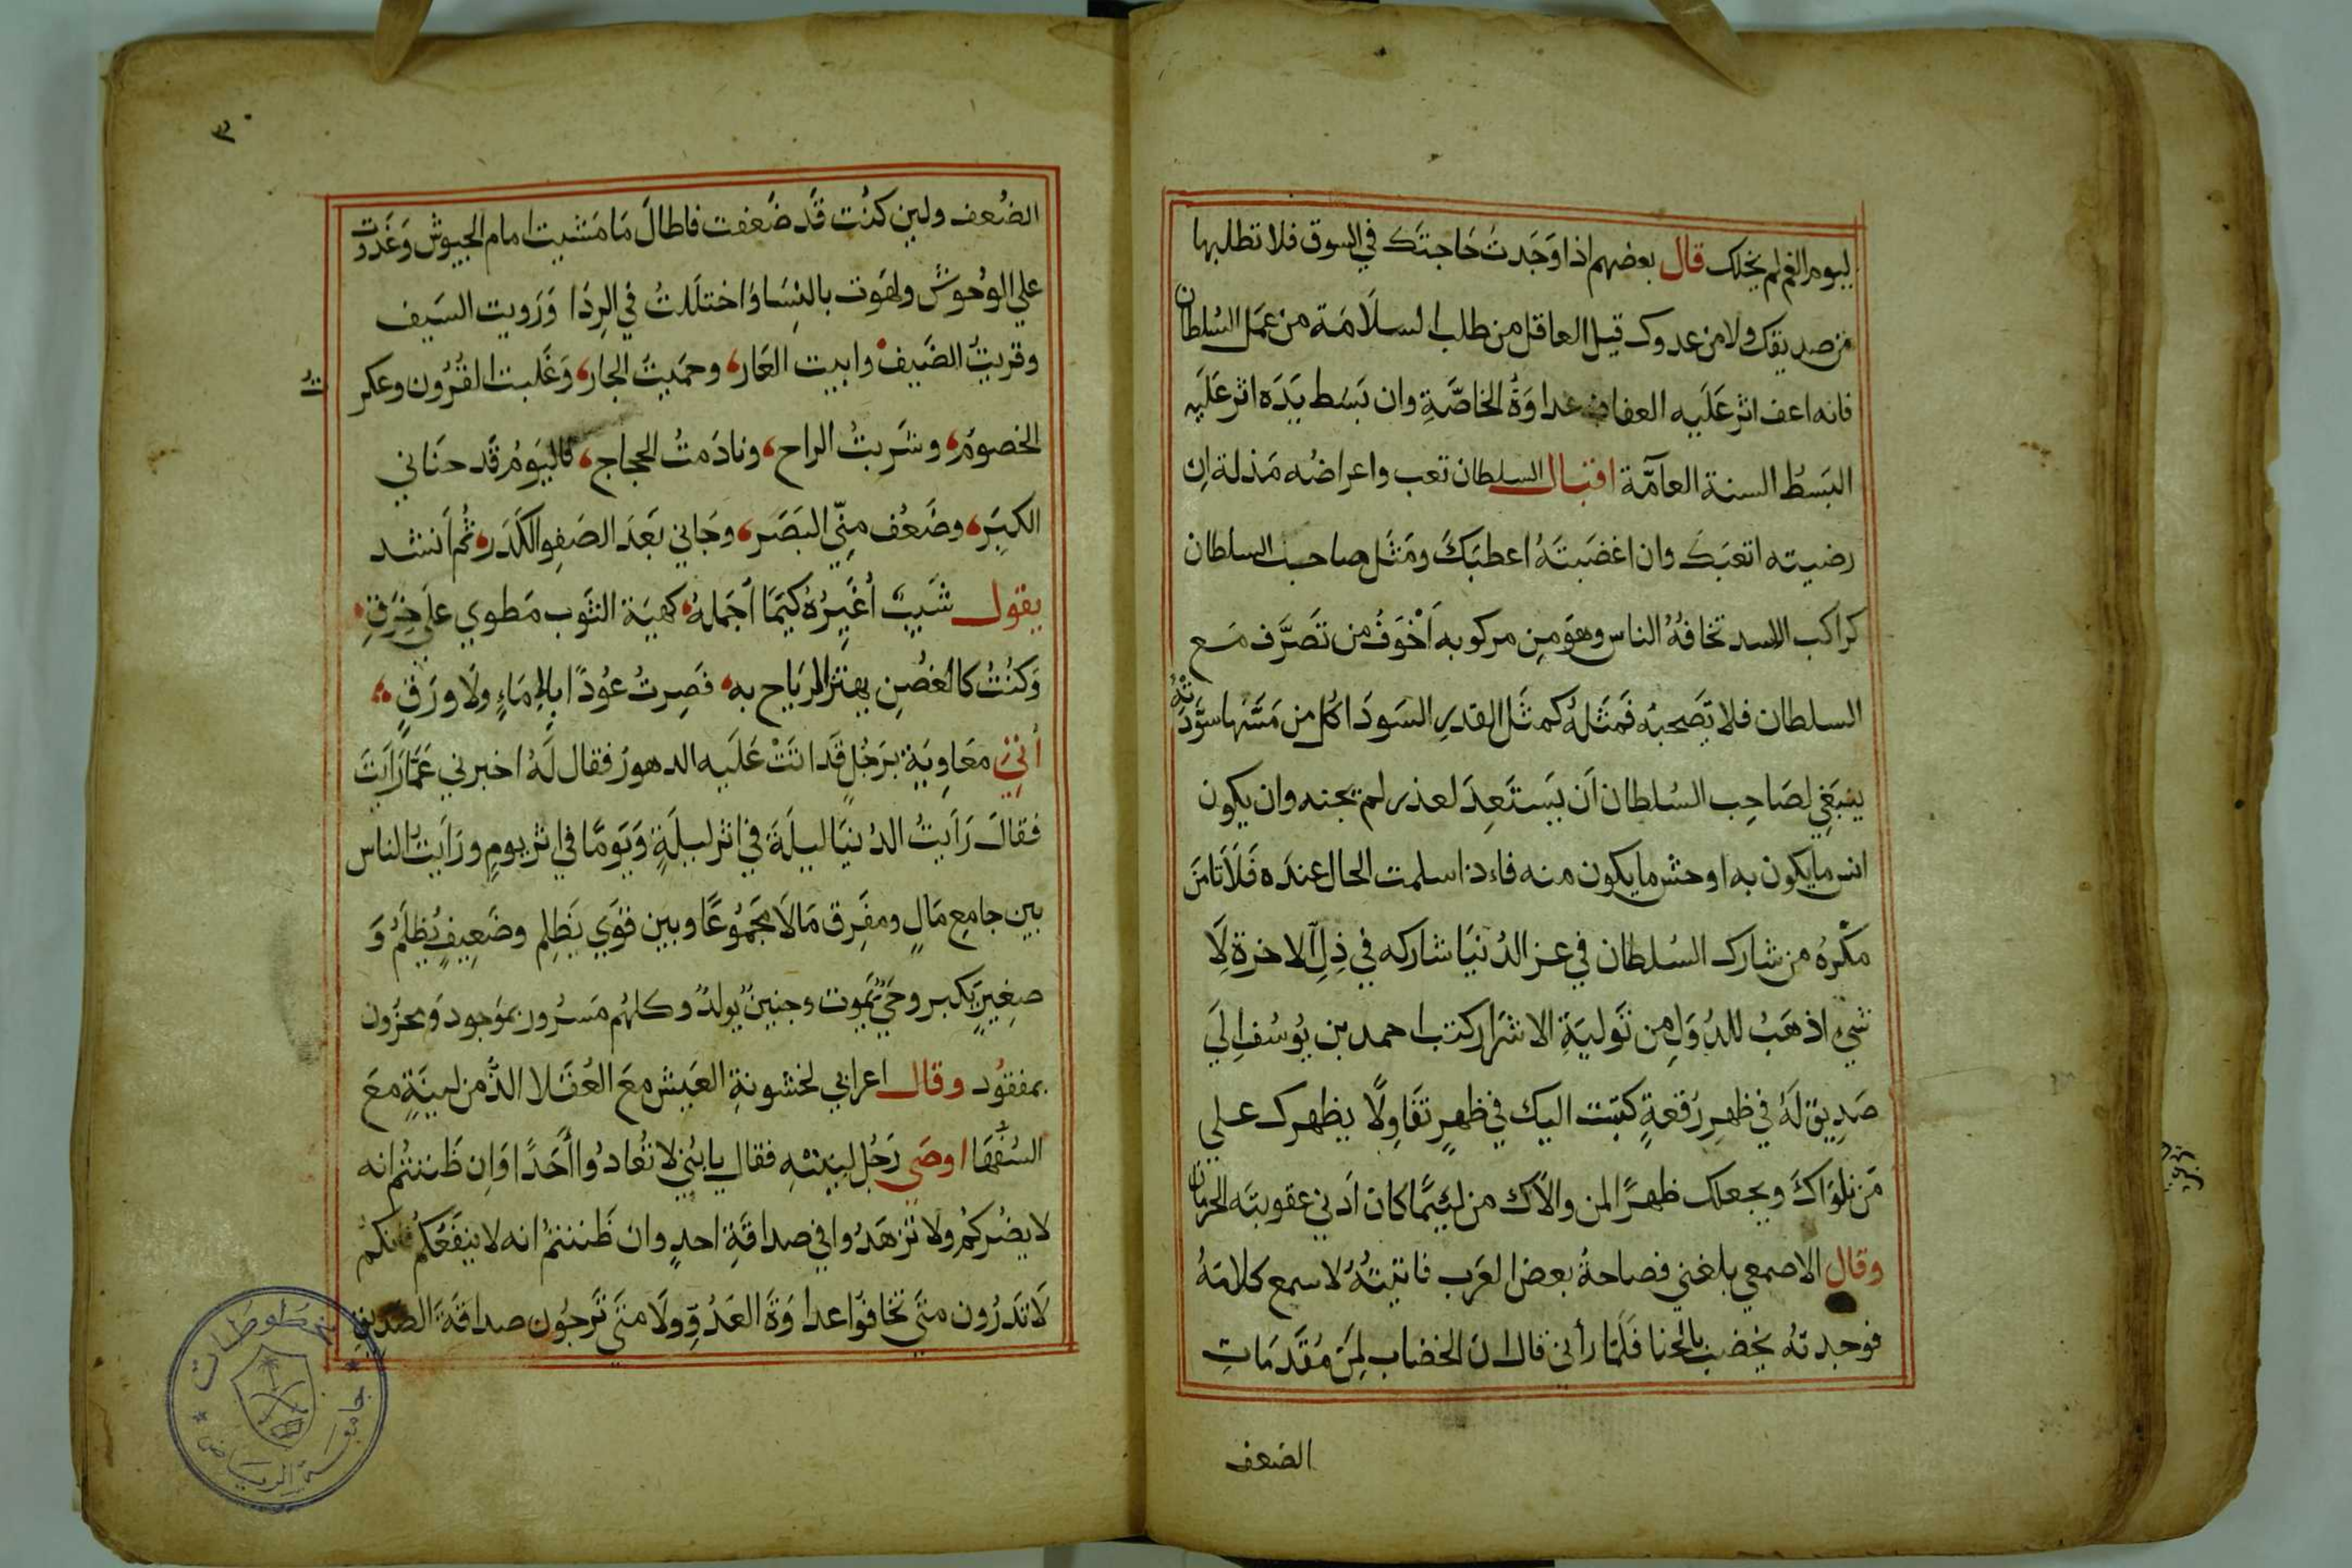 ليوم الغم لم يخلك قال بعضهم اذا وَجَدتَ حَاجتَك في السوق فلا تطلبها
من صديقك ولا من عدوك قيل العاقل من طلب السلاَمَة من عمَل السُلطان
فانه اعف اثر عَلَيه العفاف عداوَةُ الخاصَّةِ وان بَسَط يَدَه اثر عَلَيه
البَسَطُ السنة العآمَّة اقبال السلطان تعب واعراضُه مَذلة ان
رضيته اتعبَك وان اغضَبتَهُ اعطبَكَ ومَثَل صاحب السلطان
كراكب الاسد تخافهُ الناس وهوَ مِن مركوبه اَخْوَفُ من تصَرَّف مَع
السلطان فلا يَصحبهُ فمَثَلهُ كمثَل القدرِ السَودَا كل من مَسَّها سوَّدَتْهُ
ينبَغي لصَاحِب السُلطان اَن يَستَعِدَ لعذر لم يجنه وان يكون
انس ما يكون به اوحش ما يكون منه فاءذا سلمت الحال عندَه فَلَا تامَن
مكْرهُ من شارك السُلطان في عز الدُنيَا شاركه في ذِلِّ الاخرة لَا
شيْ اذهَبُ للدُوَلِ من تَوليَةِ الاشرَار كتب احمد بن يوُسُف اِلَي
صَدِيقٍ لَهُ في ظهرِ رُقعةٍ كتبَت اليك في ظهرٍ تفَاوِلًا يظهرك علي
مَن ناوَاكَ ويجعلك ظهرًا لمن والاَك من
كان اَدني عقوبتَه الحرمان
وقال الاصمعي بلغني فصاحةُ بعض العَرب فاتيتُهُ لاسمع كلامَهُ
فوجدتهُ يخضب بالحنا فَلَمَّا رأني قال انَ الخضاب لمِنَ مُقَدَمَاتِ
الضعف
٣٠
الضُعف ولين كنُت قَد ضَعفت فاطالَ مَا مَشيت امام الجيوش وَغَدَوت
علي الوُحوُش ولهَوت بالنِسَا وَاختلَلتُ في الرِدَا وَرَويت السَيف
وقريتُ الضَيف وابيت العَار، وحمَيتُ الجار، وَغَلبت القُرُون وعكرتُ
الخصومَ، وشَربتُ الراح، ونادَمتُ الحجاج، فاليَومُ قَد حنَاني
الكبَرِ، وضَعُف مِنّي البَصَر، وجَاني بَعدَ الصَفوِ الكَدَر، ثُم اَنشد
يقول شَيبٌ أغَيرُهُ كيمَا اُجَملهُ كهيَة الثَوب مَطوي علَي خِرَقِ
وَكنُتُ كالغُصْنِ يهتز الرياح به، فَصِرتُ عوُدًا بِلا مَاءٍ ولَا ورَقٍ
أُتِيَ مَعَاوِيَة برَجُلٍ قَد اتَتْ عَلَيه الدهورُ فقال لَهُ اخبرني عَمَّا رَاَيتَ
فقالَ رَاَيتُ الدُنيَا ليلَةَ في اثر ليلَةٍ وَيَومًا في اثر يومٍ ورَاَيتُ الناس
بين جامِع مَالٍ ومفَرِق مَالَا مجَموُعًا وبين قوَي يَظلِم وضَعِيفٍ يُظلَمُ وَ
صغِيرٍ يَكبر وحَيّ يَموت وجنينُ يولدُ وكلهُم مَسرُور بموَجود وَمحزُون
بمفقوُد وقال اعرابي لخشونةِ العَيش معَ العُقَلا الذّ من لينَةٍ معَ
السُفَهَا اوصَي رَجُل لبِنيْهِ فقال يا بَنيّ لا تُعادُوا أَحَدًا وَاِن ظَننتُم انه
لا يضُركُم ولا تَزهَدُوا في صداقَةِ احدٍ وان ظَننتمُ انه لا ينفَعُكُم فانكم
لَا تَدرُون متَي تخافوُا عداوَةَ العَدُوِّ ولَا متَي تَرجُون صداقةَ الصَديق
مخطوطات
جامعة الرياض